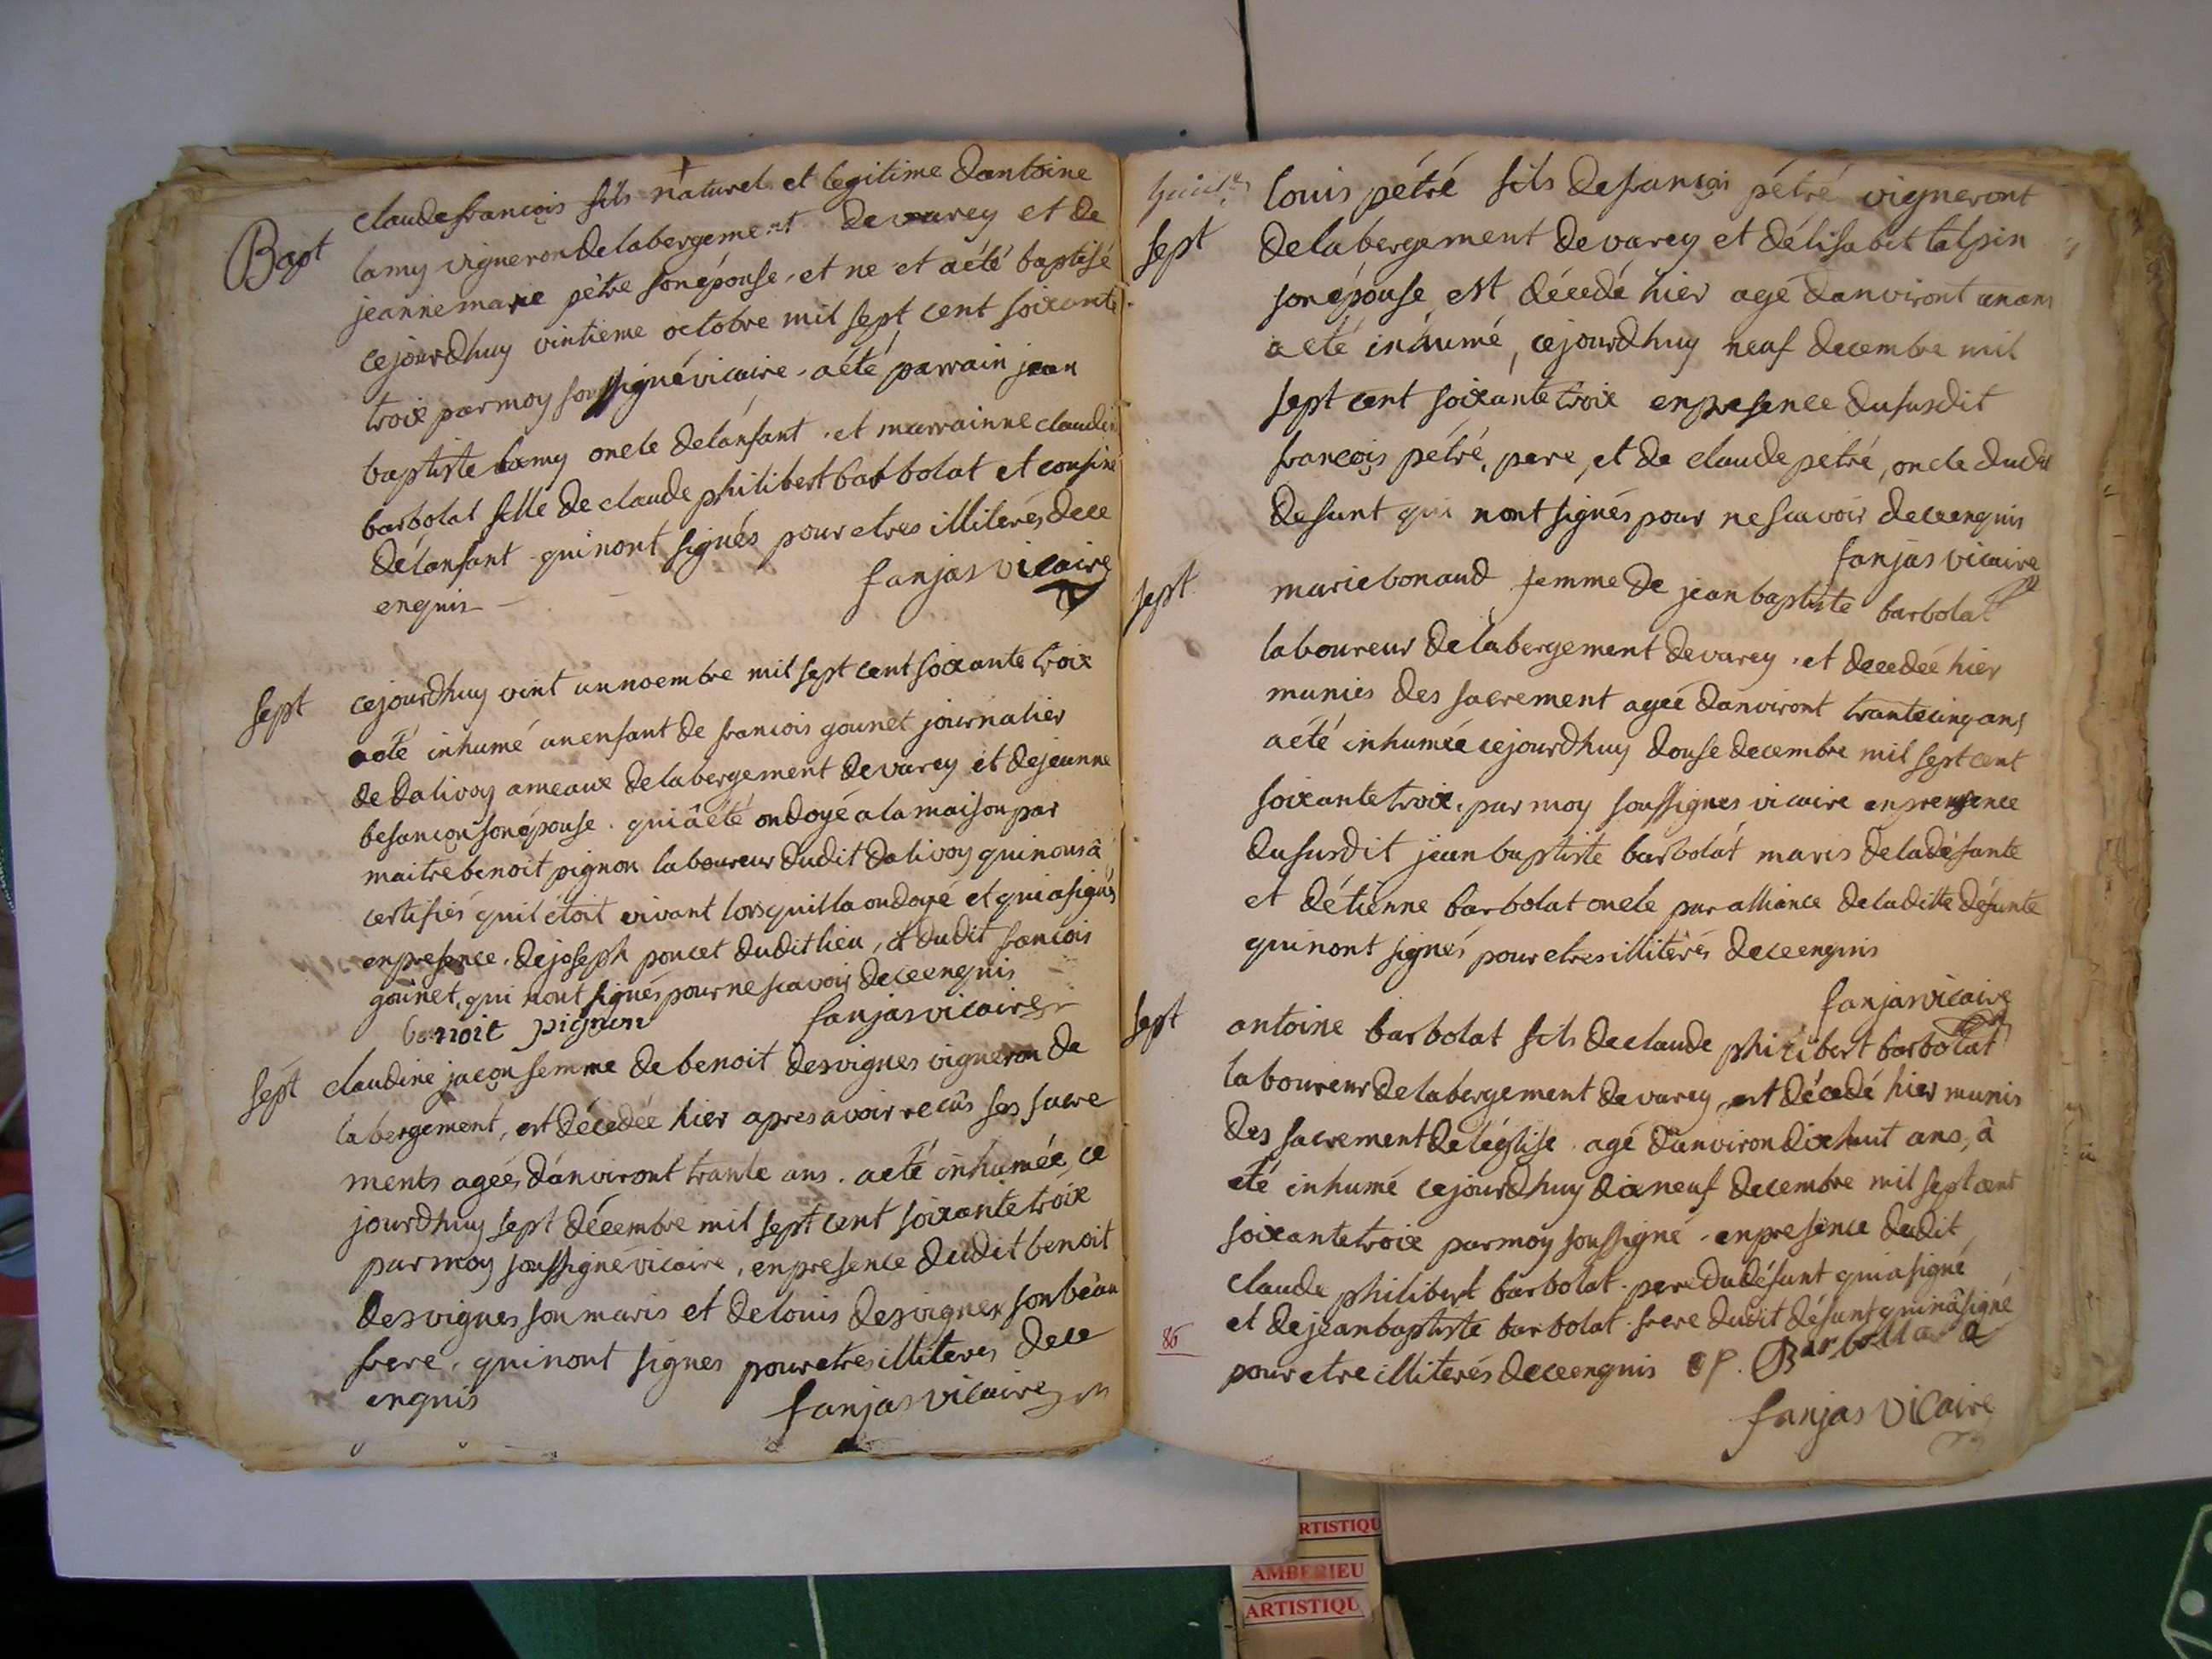 Bapt
claude francois fils naturel et legitime dantoine
lamy vigneron de labergement de varey et de
jeanne marie pétre son épouse, et ne et a été baptisé
cejourdhuy vintieme octobre mil sept cent soixante
troix par moy soussigné vicaire. a été parrain jean
baptiste lamy oncle de lanfant. et marrainne claudine
barbolat fille de claude philibert barbolat et cousine
de lanfant qui nont signés pour etres illiterés de ce
enquis
fanjas vicaire
sept
cejourdhuy vint un noembre mil sept cent soixante troix
a été inhumé un enfant de francois gounet journalier
de dalivoy ameaux de labergement de varey et de jeanne
besançon son épouse. qui à été ondoyé a la maison par
maitre benoit pignon laboureur dudit dalivoy qui nous à
certifiés quil étoit vivant lorsquil la ondoyé et qui a signés
en presence de joseph poncet dudit lieu, et dudit francois
gounet, qui nont signés pour ne scavoir de ce enquis
benoit pignon
fanjas vicaire
sept
claudine jaçon femme de benoit desvignes vigneron de
labergement, est décedée hier apres avoir recûs ses sacre
ments agées d'anviront trante ans. a eté inhumée, ce
jourdhuy sept décembre mil sept cent soixante troix
par moy soussigné vicaire, en presence dudit benoit
desvignes son maris et de louis desvignes son beau
frere, qui nont signes pour etres illiteres de ce
enquis
fanjas vicaire
sept
louis pétré fils de francois pétré vigneront
de labergement de varey et délisabet talpin
son épouse est décedé hier agé danviront un ans
a eté inhumé, cejourdhuy neuf decembre mil
sept cent soixante troix en presence du susdit
françois pétré, pere, et de claude petré, oncle dudit
defunt qui nont signés pour ne scavoir de ce enquis
fanjas vicaire
sept
marie bonaud femme de jean baptiste barbolat
laboureur de labergement de varey. et decedeé hier
muniés des sacrement ageé danviront trante cinq ans
a été inhumée cejourdhuy douse decembre mil sept cent
soixante troix. par moy soussignes vicaire en presence
du susdit jean baptiste barbolat maris de la défante
et détienne barbolat oncle par alliance de laditte défunte
qui nont signés pour etres illitérés de ce enquis
fanjas vicaire
sept
antoine barbolat fils de claude philibert barbolat
laboureur de labergement de varey, est décedé hier munis
des sacrement de léglise. agé danviron dix huit ans, à
eté inhumé cejourdhuy dix neuf decembre mil sept cent
soixante troix par moy soussigné. en presence dudit
claude philibert barbolat. pere du défunt qui a signé
et de jean baptiste barbolat. frere dudit défunt qui nà signé
86
pour etre illiterés de ce enquis
fanjas vicaire
RTISTIQU
AMBERIEU
ARTISTIQU